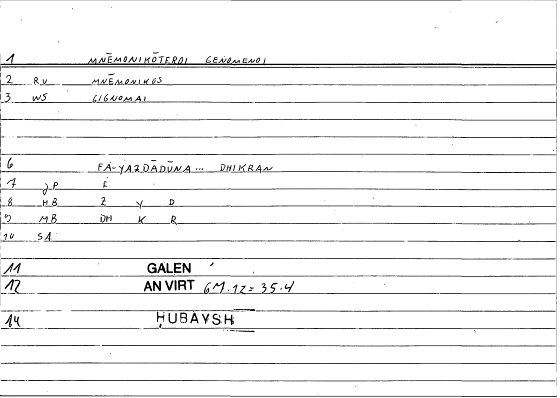 1 MNĒMONIKŌTEROI GENOMENOI
2 RV MNĒMONIKOS
3 WS GIGNOMAI
6 FA-YAZDĀDŪNA... DHIKRAN
7 JP F
8 HB Z Y D
9 MB DH K R
10 SA
11 GALEN
12 AN VIRT 6M.12 = 35.4
14 ḤUBAYSH